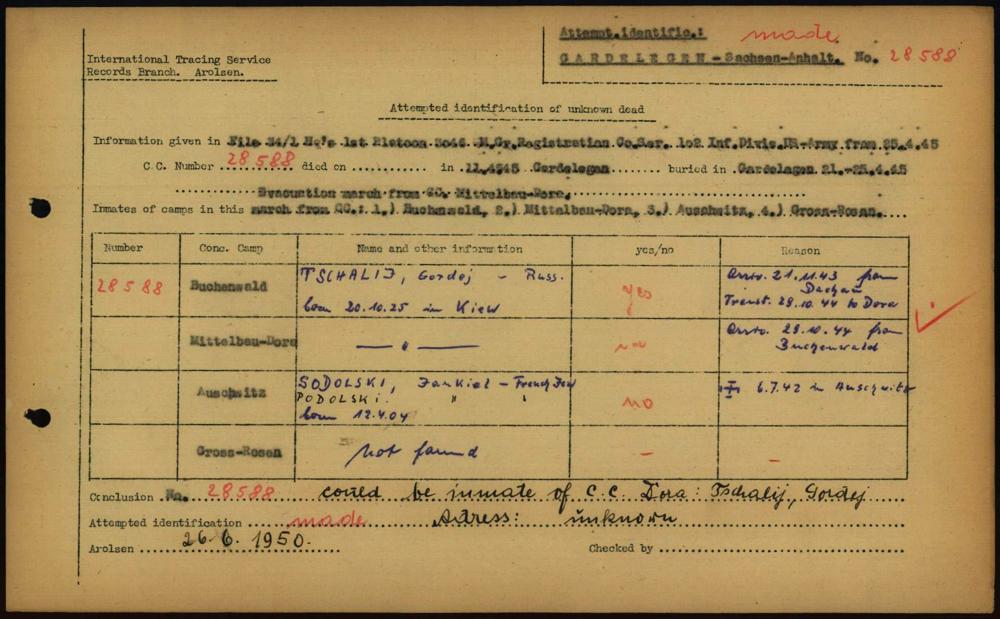 Attempt.identific.: made
International Tracing Service
Records Branch. Arolsen.
GARDELEGEN - Sachsen-Anhalt. No. 28588
Attempted identification of unknown dead
Information given in File 54/1 Hq's 1st Platoon 3046 M.Gr.Registration Co.Ser. 102 Inf.Divis.US-Army from 25.4.45
C.C. Number 28588 died on ............ in 11.4.45 Gardelegen buried in Gardelegen 21.-25.4.45
Evacuation march from CC. Mittelbau-Dora.
Inmates of camps in this march from CC.: 1.) Buchenwald, 2.) Mittelbau-Dora, 3.) Auschwitz, 4.) Gross-Rosen.
Number Conc. Camp Name and other information yes/no Reason
28588 Buchenwald TSCHALIJ, Gordej - Russ. yes Arriv. 21.11.43 from
Dachau
born 20.10.25 in Kiew Transf. 28.10.44 to Dora
Mittelbau-Dora — " — Arriv. 28.10.44 from
Buchenwald
Auschwitz SODOLSKI, Jankiel - French Jew no 6.7.42 in Auschwitz
PODOLSKI. " "
born 12.4.04
Gross-Rosen not found - -
Conclusion No. 28588 could be inmate of C.C. Dora: Tschalij, Gordej
Attempted identification made Adress: unknown
Arolsen 26.6.1950. Checked by